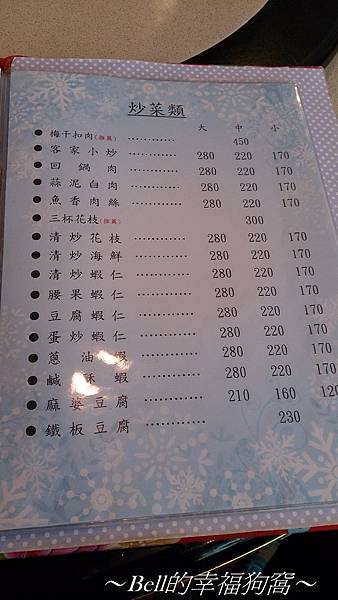 炒菜類
大 中 小
● 梅干扣肉(推薦) ............ 450
● 客家小炒 ............ 280 220 170
● 回鍋肉 ............ 280 220 170
● 蒜泥白肉 ............ 280 220 170
● 魚香肉絲 ............ 280 220 170
● 三杯花枝(推薦) ............ 300
● 清炒花枝 ............ 280 220 170
● 清炒海鮮 ............ 280 220 170
● 清炒蝦仁 ............ 280 220 170
● 腰果蝦仁 ............ 280 220 170
● 豆腐蝦仁 ............ 280 220 170
● 蛋炒蝦仁 ............ 280 220 170
● 蔥油蝦 ............ 280 220 170
● 鹹酥蝦 ............ 280 220 170
● 麻婆豆腐 ............ 210 160 120
● 鐵板豆腐 ............ 230
～Bell的幸福狗窩～